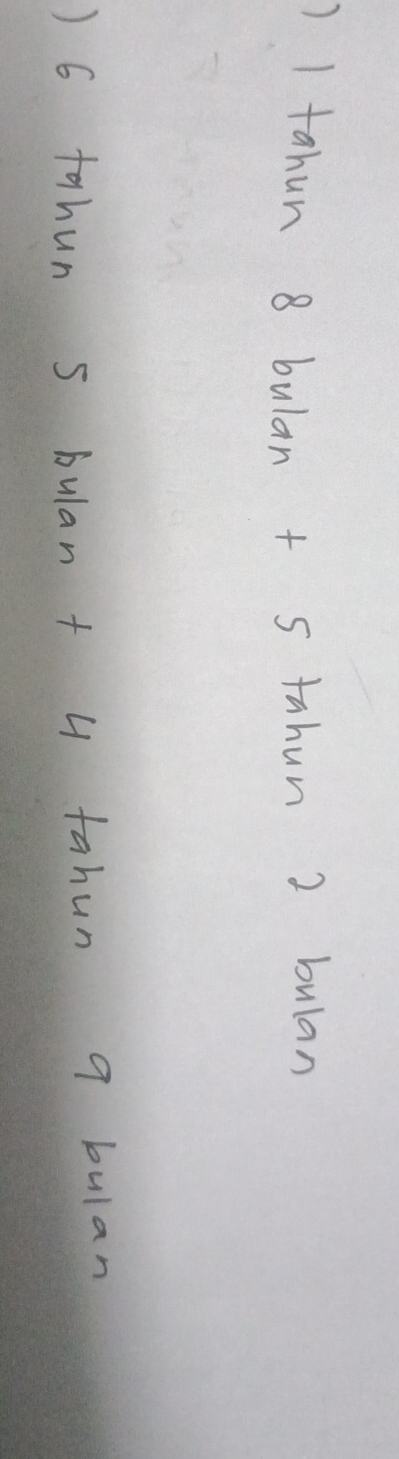 ) 1 tahun 8 bulan + 5 tahun 2 bulan
) 6 tahun 5 bulan + 4 tahun 9 bulan